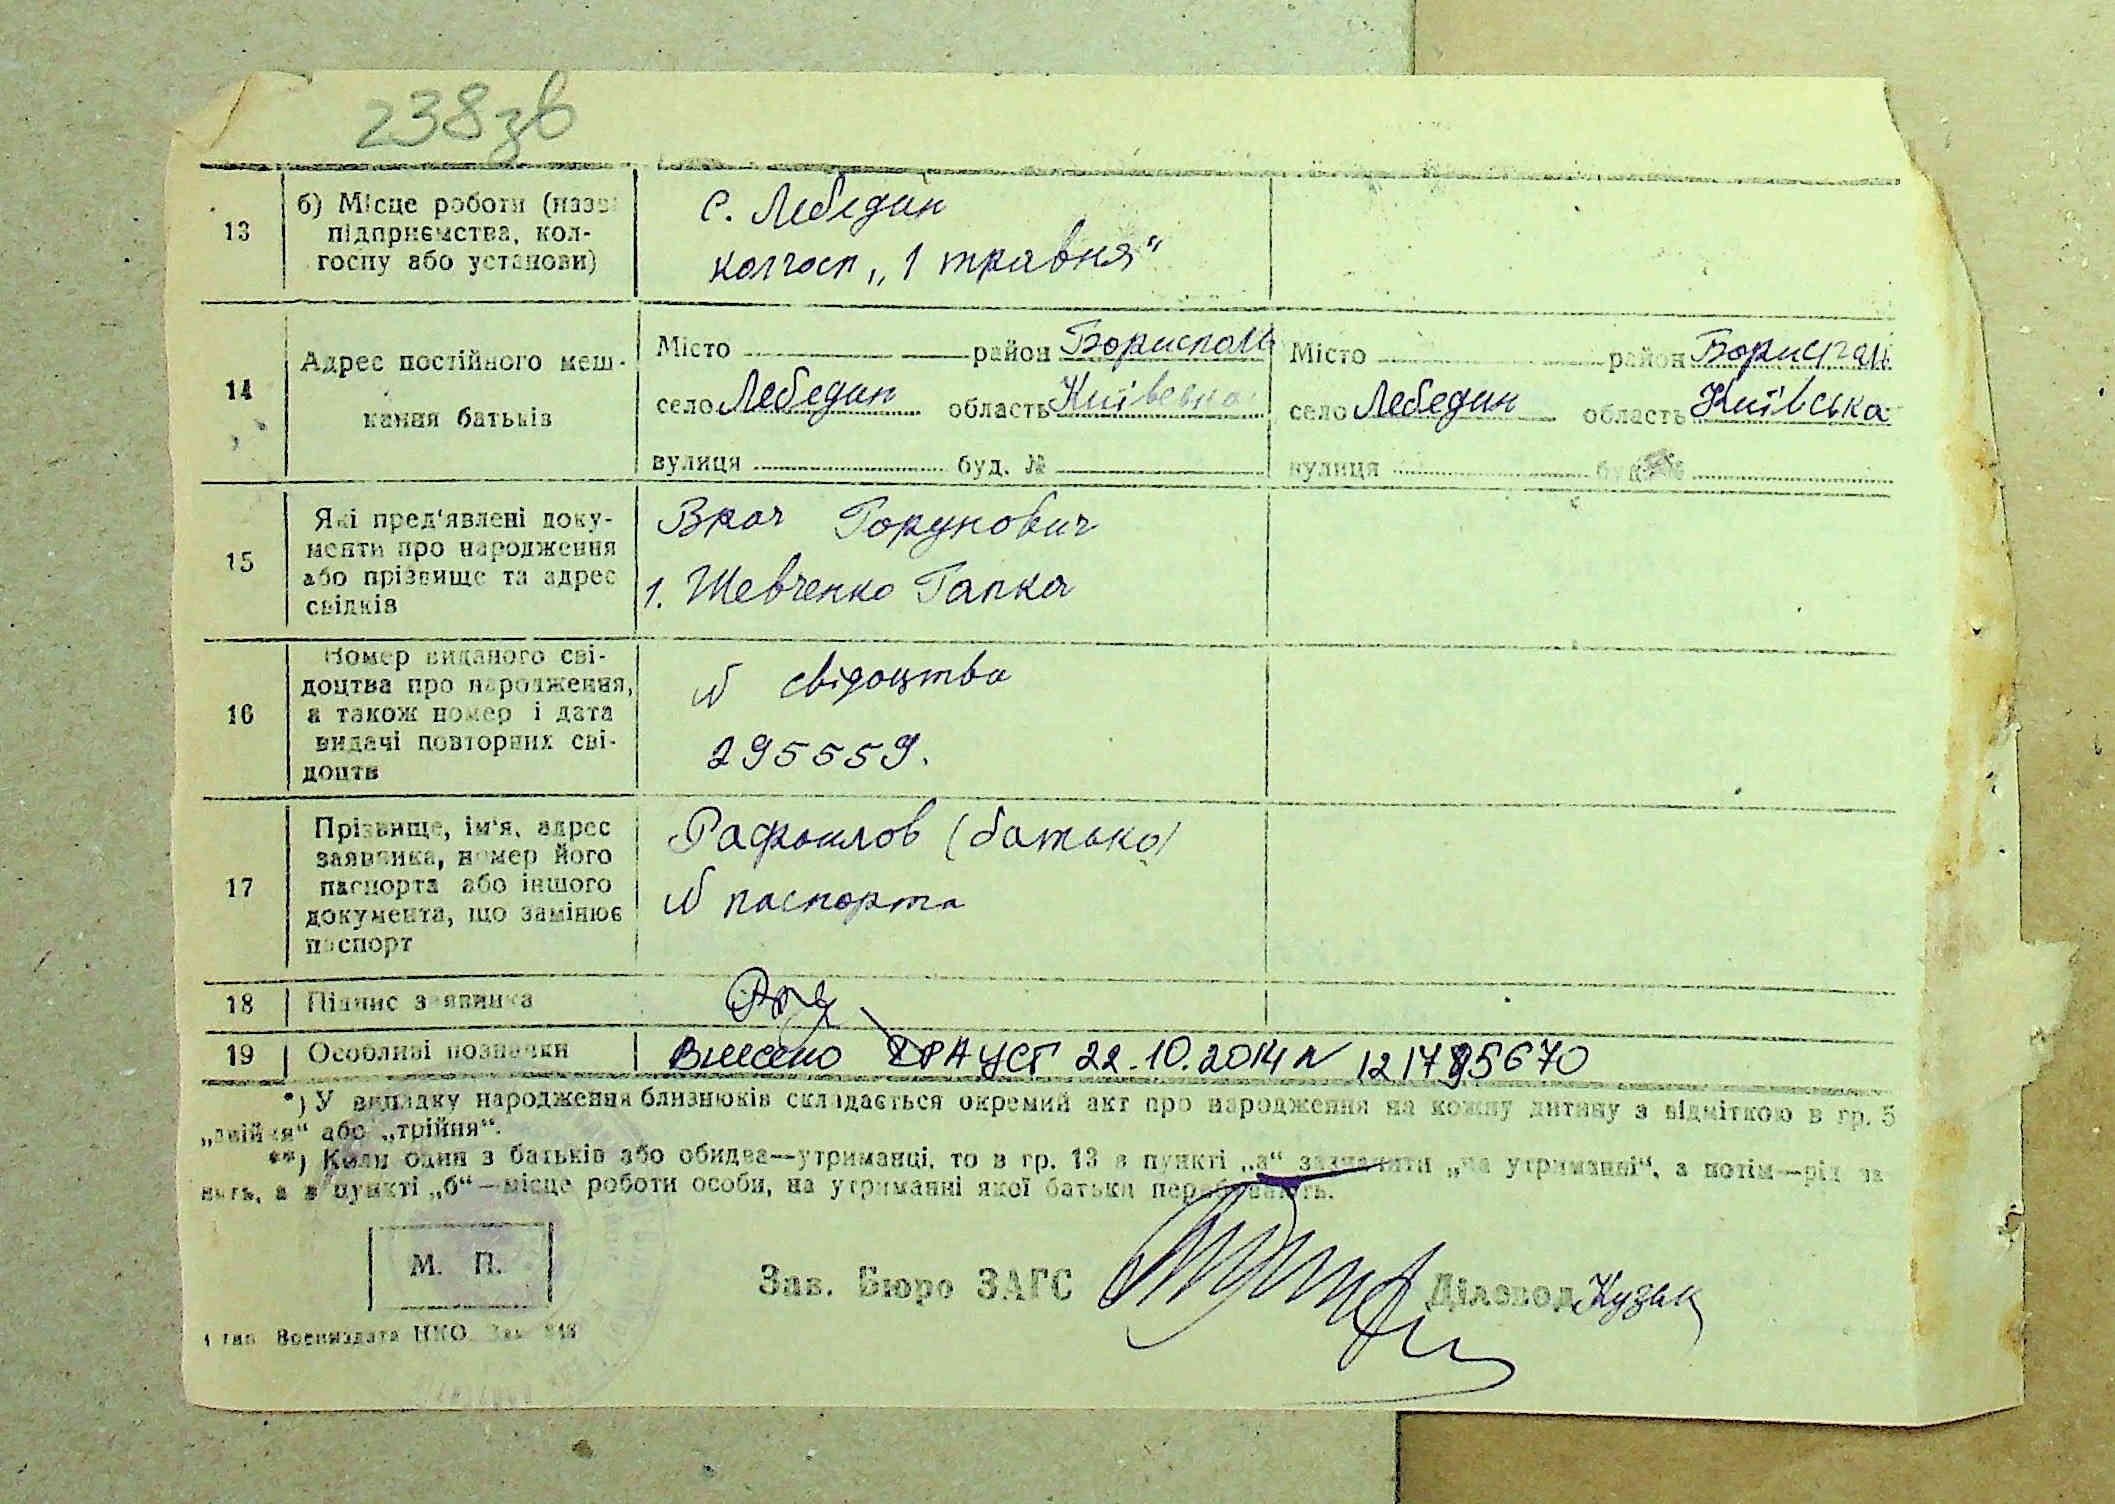 238зв
13
б) Місце роботи (назва
підприємства, кол-
госпу або установи)
с. Лебедин
колгосп „1 травня“
14
Адрес постійного меш-
кання батьків
Місто район Бориспіль
село Лебедин область Київська
вулиця буд. №
Місто район Бориспіль
село Лебедин область Київська
вулиця буд. №
15
Які пред'явлені доку-
менти про народження
або прізвище та адрес
свідків
Врач Горунович
1. Шевченко Гапка
16
Номер виданого сві-
доцтва про народження,
а також номер і дата
видачі повторних сві-
доцтв
№ свідоцтва
295559.
17
Прізвище, ім'я, адрес
заявника, номер його
паспорта або іншого
документа, що замінює
паспорт
Рафаилов (батько)
№ паспорта
18
Підпис заявника
19
Особливі позначки
Внесено ДРАЦСГ 22.10.2014 N
*) У випадку народження близнюків складається окремий акт про народження на кожну дитину з відміткою в гр. 5
„двійня“ або „трійня“.
**) Коли один з батьків або обидва—утриманці, то в гр. 13 в пункті „а“ зазначити „на утриманні“, а потім—рід за
нять, а в пункті „б“—місце роботи особи, на утриманні якої батьки перебувають.
М. П.
Зав. Бюро ЗАГС
Діловод Кузьк
1 тип. Воениздата НКО. Зак.